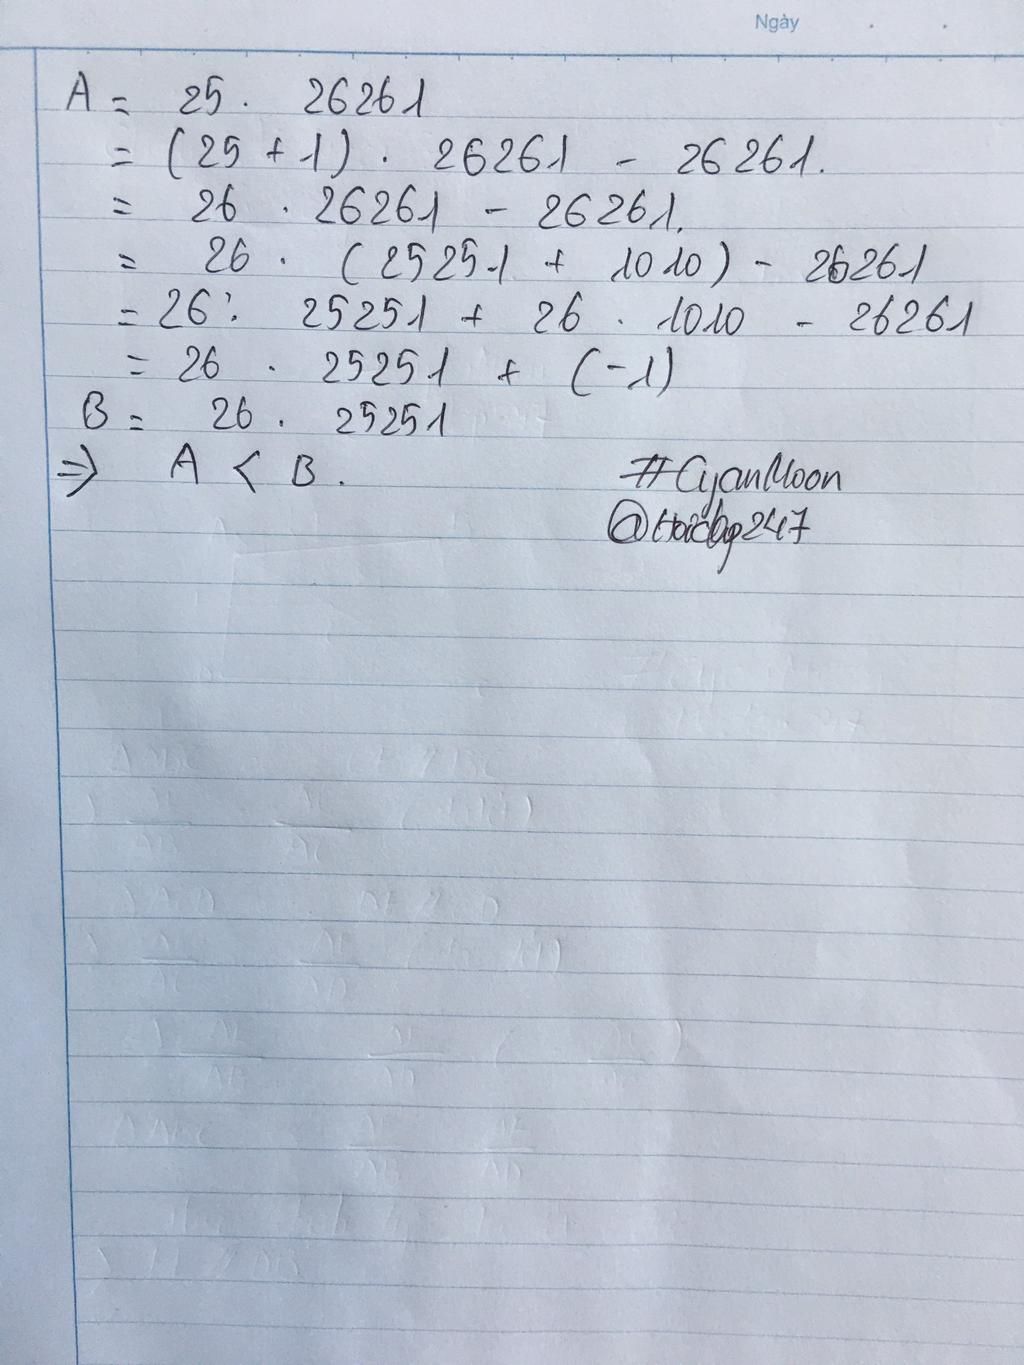 Ngày
A = 25 . 26261
= (25 + 1) . 26261 - 26261.
= 26 . 26261 - 26261.
= 26 . (25251 + 1010) - 26261
= 26 . 25251 + 26 . 1010 - 26261
= 26 . 25251 + (-1)
B = 26 . 25251
⇒ A < B.
#CyanMoon